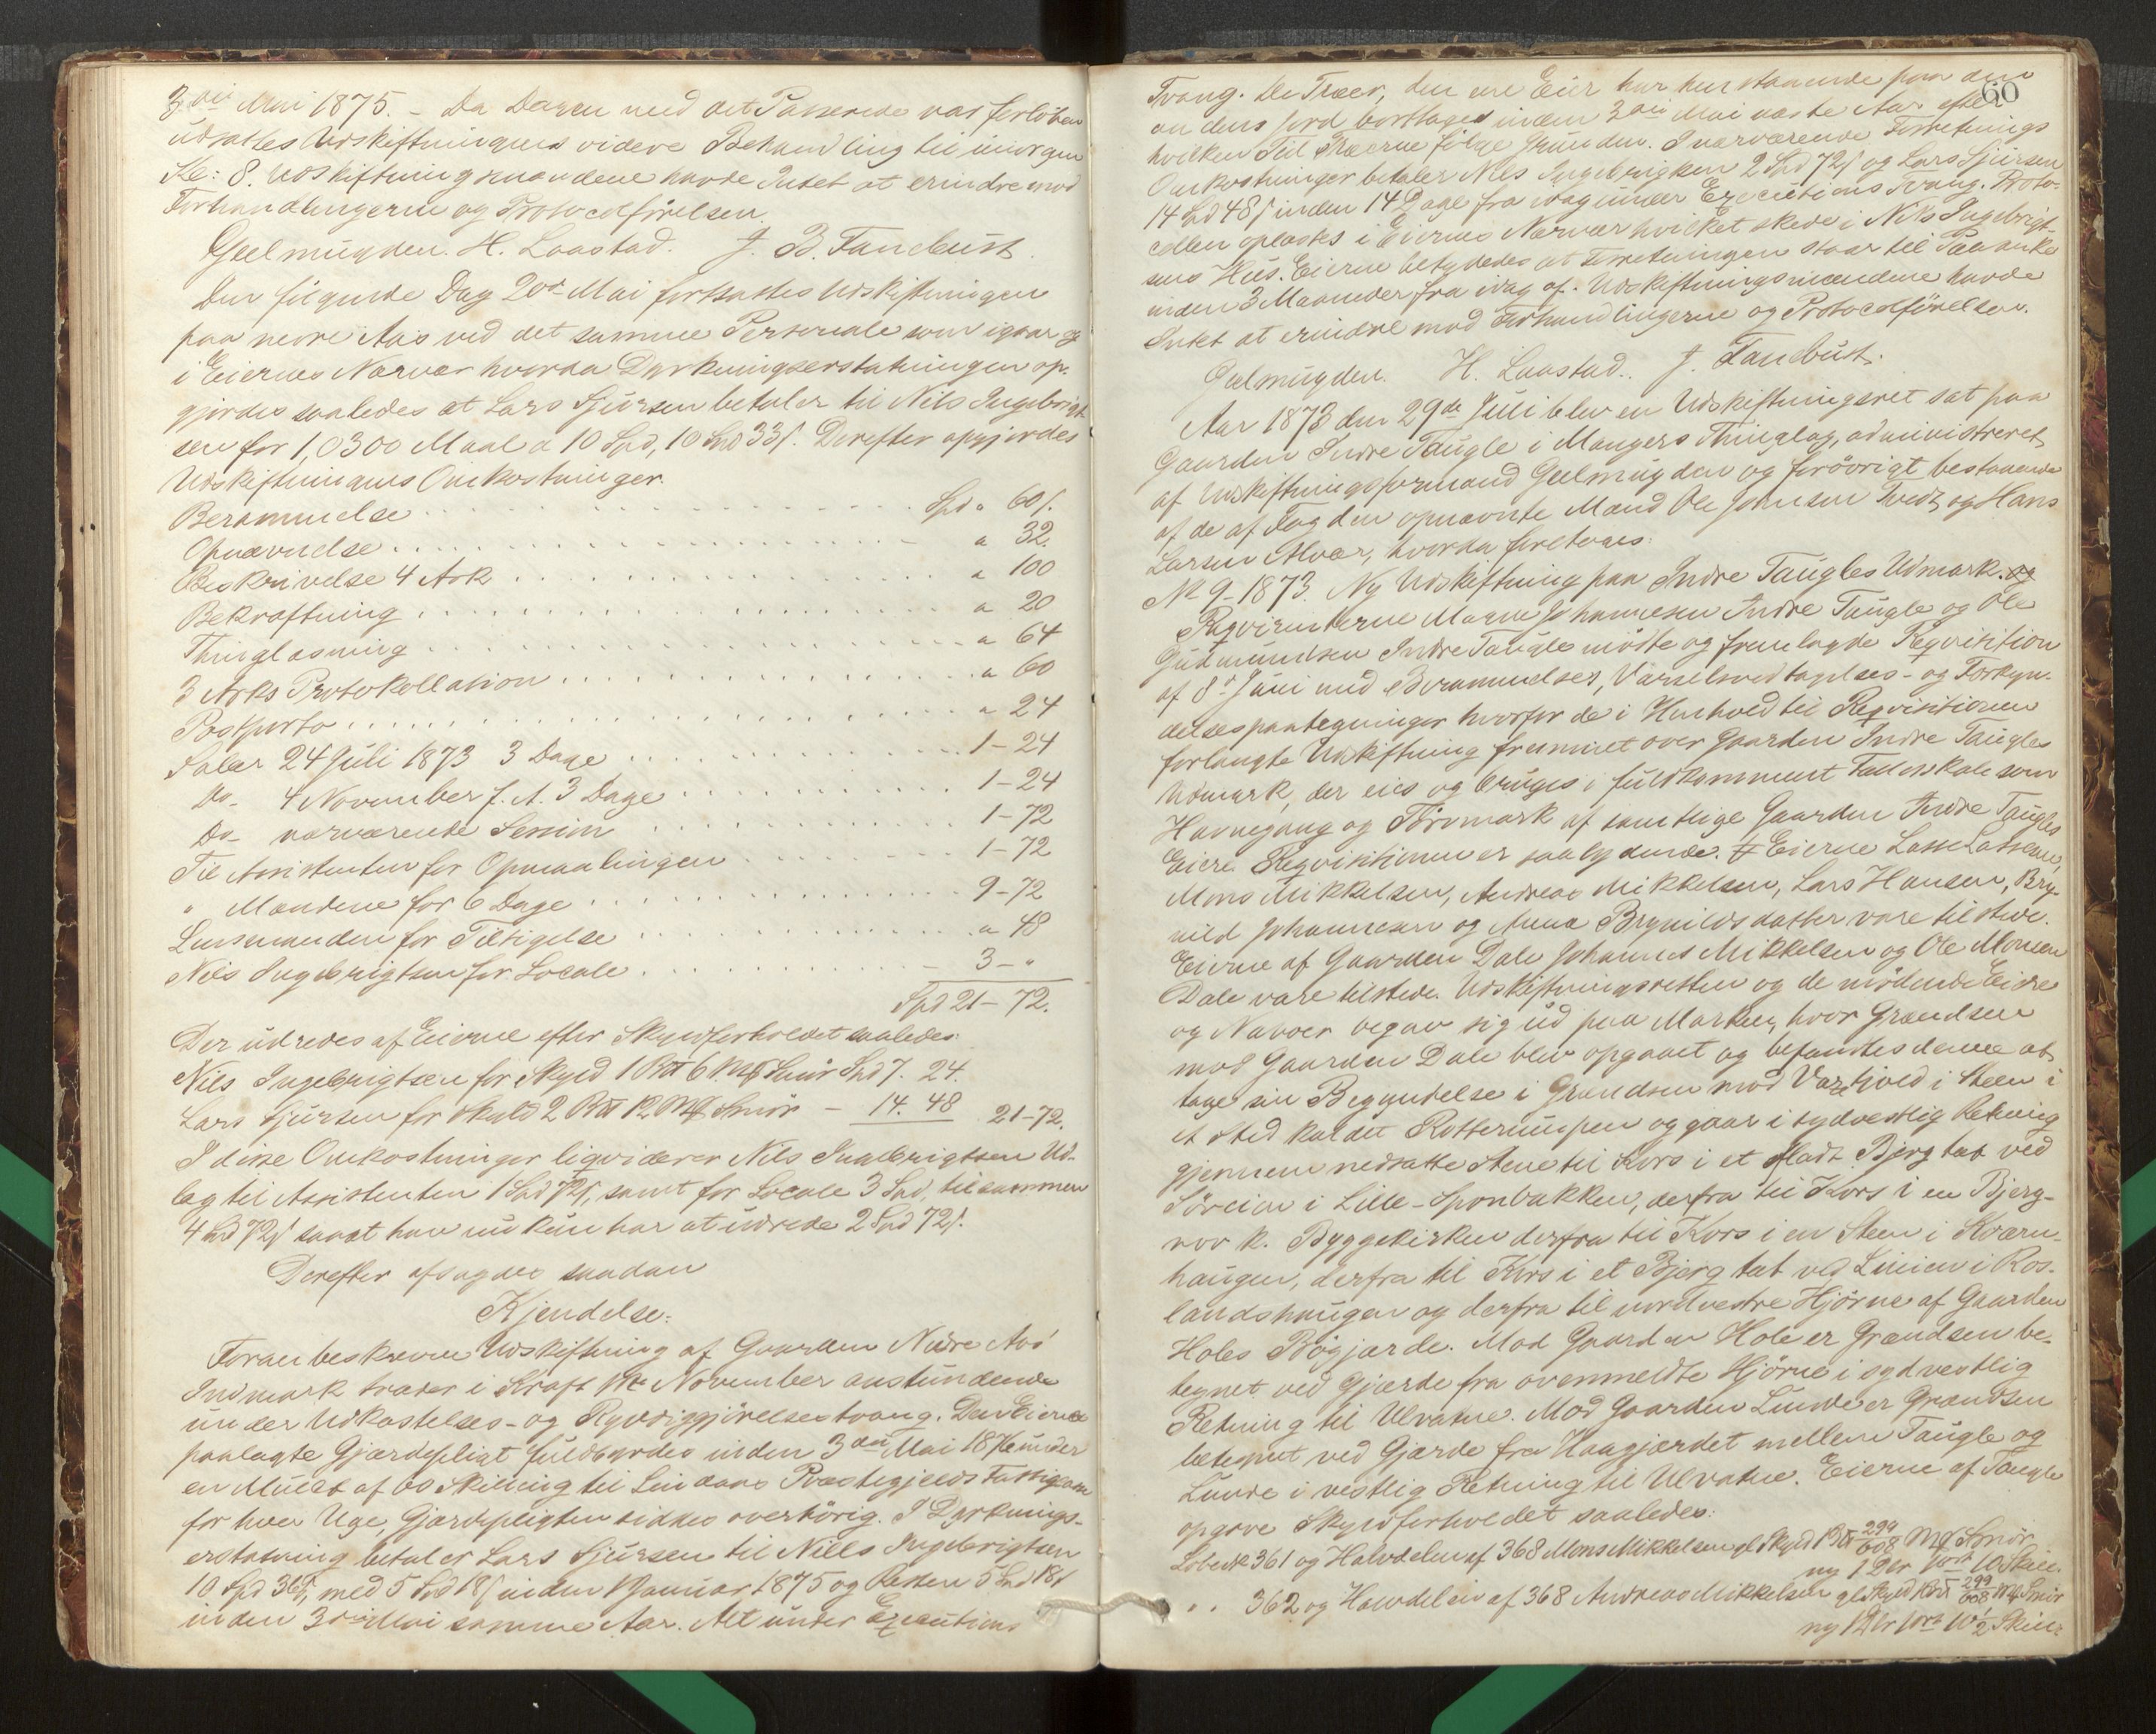 3die Mai 1875. – Da Dagen med det Passerede var forløben
udsattes Udskiftningens videre Behandling til imorgen
Kl: 8. Udskiftningsmændene havde Intet at erindre mod
Forhandlingerne og Protocolførelsen.
Geelmuyden. H. Laastad. J. B. Tandbust.
Den følgende Dag 20de Mai fortsattes Udskiftningen
paa nedre Aas ved det samme Personale som igaar og
i Eiernes Nærvær hvorda Dyrkningserstatningen op-
gjordes saaledes at Lars Sjursen betaler til Nils Ingebrigt-
sen for 1,0300 Maal a 10 Spd, 10 Spd 33 ſ. Derefter opgjordes
Udskiftningens Omkostninger.
Berammelse . . . Spd " 60 ſ.
Opnævnelse . . . " 32.
Beskrivelse 4 Ark . . . " 100
Bekræftning . . . " 20
Thinglæsning . . . " 64
3 Arks Protokollation . . . " 60
Postporto . . . " 24
Salær 24 Juli 1873 3 Dage . . . 1–24
Do– 4 November f. A. 3 Dage . . . 1–24
Do– nærværende Session . . . 1–72
Til Assistenten for Opmaalingen . . . 1–72
" Mændene for 6 Dage . . . 9–72
Lensmanden for Tiltigelse . . . " 48
Nils Ingebrigtsen for Locale . . . 3– "
Spd 21–72.
Der udredes af Eierne efter Skyldforholdet saaledes:
Nils Ingebrigtsen for Skyld 1 Pd 6 Mk Smör Spd 7. 24.
Lars Sjursen for Skyld 2 Pd 12 Mk Smör – 14. 48 21–72.
I disse Omkostninger liqviderer Nils Ingebrigtsen Ud-
læg til Assistenten 1 Spd 72 ſ, samt for Locale 3 Spd, tilsammen
4 Spd 72 ſ saaat han nu kun har at udrede 2 Spd 72 ſ.
Derefter afsagdes saadan
Kjendelse:
Foranbeskrevne Udskiftning af Gaarden Nedre Aas'
Indmark træder i Kraft November anstundende
under Udkastelses- og Ryddiggjörelsestvang. Den Eierne
paalagte Gjærdepligt fuldbyrdes inden 3die Mai under
en Mulkt af 60 Skilling til Lindaas Præstegjelds Fattigcasse
for hver Uge, Gjærdepligten siddes overhörig. I Dyrknings-
erstatning betaler Lars Sjursen til Niels Ingebrigtsen
10 Spd 36 ſ, med 5 Spd 18 ſ inden Januar 1875 og Resten 5 Spd 18 ſ
inden 3die Mai samme Aar. Alt under Executions
60
Tvang. De Træer, den ene Eier har henstaaende paa den
andens Jord borttages inden 3die Mai næste Aar efter
hvilken Tid Træerne fölge Grunden. I nærværende Forretnings
Omkostninger betaler Nils Ingebrigtsen 2 Spd 72 ſ og Lars Sjursen
14 Spd 48 ſ inden 14 Dage fra idag under Executions Tvang. Proto-
collen oplæstes i Eiernes Nærvær hvilket skede i Nils Ingebrigt-
sens Hus. Eierne betydedes at Forretningen staar til Paaanke
inden 3 Maaneder fra idag af. Udskiftningsmændene havde
Intet at erindre mod Forhandlingerne og Protocolförelsen.
Geelmuyden. H. Laastad. J. Tandbust.
Aar 1873 den 29de Juli blev en Udskiftningsret sat paa
Gaarden Indre Taugle i Mangers Thinglag, administreret
af Udskiftningsformand Geelmuyden og forövrigt bestaaende
af de af Fogden opnævnte Mænd Ole Johnsen Tvedt og Hans
Larsen Alvær, hvorda foretoges:
No 9–1873. Ny Udskiftning paa Indre Taugles Udmark. og
Reqvirenterne Magne Johannesen Indre Taugle og Ole
Gudmundsen Indre Taugle mödte og fremlagde Reqvisition
af 8de Juni med Berammelses, Varselsvedtagelses- og Forkyn-
delsespaategninger hvorfor de i Henhold til Reqvisitionen
forlangte Udskiftning fremmet over Gaarden Indre Taugles
Udmark, der eies og bruges i fuldkomment Fælledsskab som
Havnegang og Törvmark af samtlige Gaarden Indre Taugles
Eiere. Reqvisitionen er saalydende. Eierne Lasse Lassesen,
Mons Mikkelsen, Andreas Mikkelsen, Lars Hansen, Bry-
nild Johannesen og Anna Brynildsdatter vare tilstede.
Eierne af Gaarden Dale Johannes Mikkelsen og Ole Monsen
Dale vare tilstede. Udskiftningsretten og de mödende Eiere
og Naboer begav sig ud paa Marken, hvor Grændsen
mod Gaarden Dale blev opgaaet og befandtes denne at
tage sin Begyndelse i Grændsen mod Vardetveid i Steen i
et Sted kaldet Rotterumpen og gaar i sydvestlig Retning
gjennem nedsatte Stene til Kors i et fladt Bjerg tæt ved
Söreien i Lille-Sponbakken, derfra til Kors i en Bjerg-
nov k. Byggekirken derfra til Kors i en Steen i Kværn-
haugen, derfra til Kors i et Bjerg tæt ved Linien i Ros-
landshaugen og derfra til nordvestre Hjörne af Gaarden
Holes Bögjærde. Mod Gaarden Hole er Grændsen be-
tegnet ved Gjærde fra ovenmeldte Hjörne i sydvestlig
Retning til Ulvatne. Mod Gaarden Lunde er Grændsen
betegnet ved Gjærde fra Haagjærdet mellem Taugle og
Lunde i vestlig Retning til Ulvatne. Eierne af Taugle
opgave Skyldforholdet saaledes:
Löbe № 361 og Halvdelen af 368 Mons Mikkelsen gl Skyld 1 Pd 299/608 Mk Smör
ny 1 Dlr 10 Skill.
" " 362 og Halvdelen af 368 Andreas Mikkelsen gl Skyld 1 Pd 299/608 Mk Smör
ny 1 Dlr 10½ Skill.